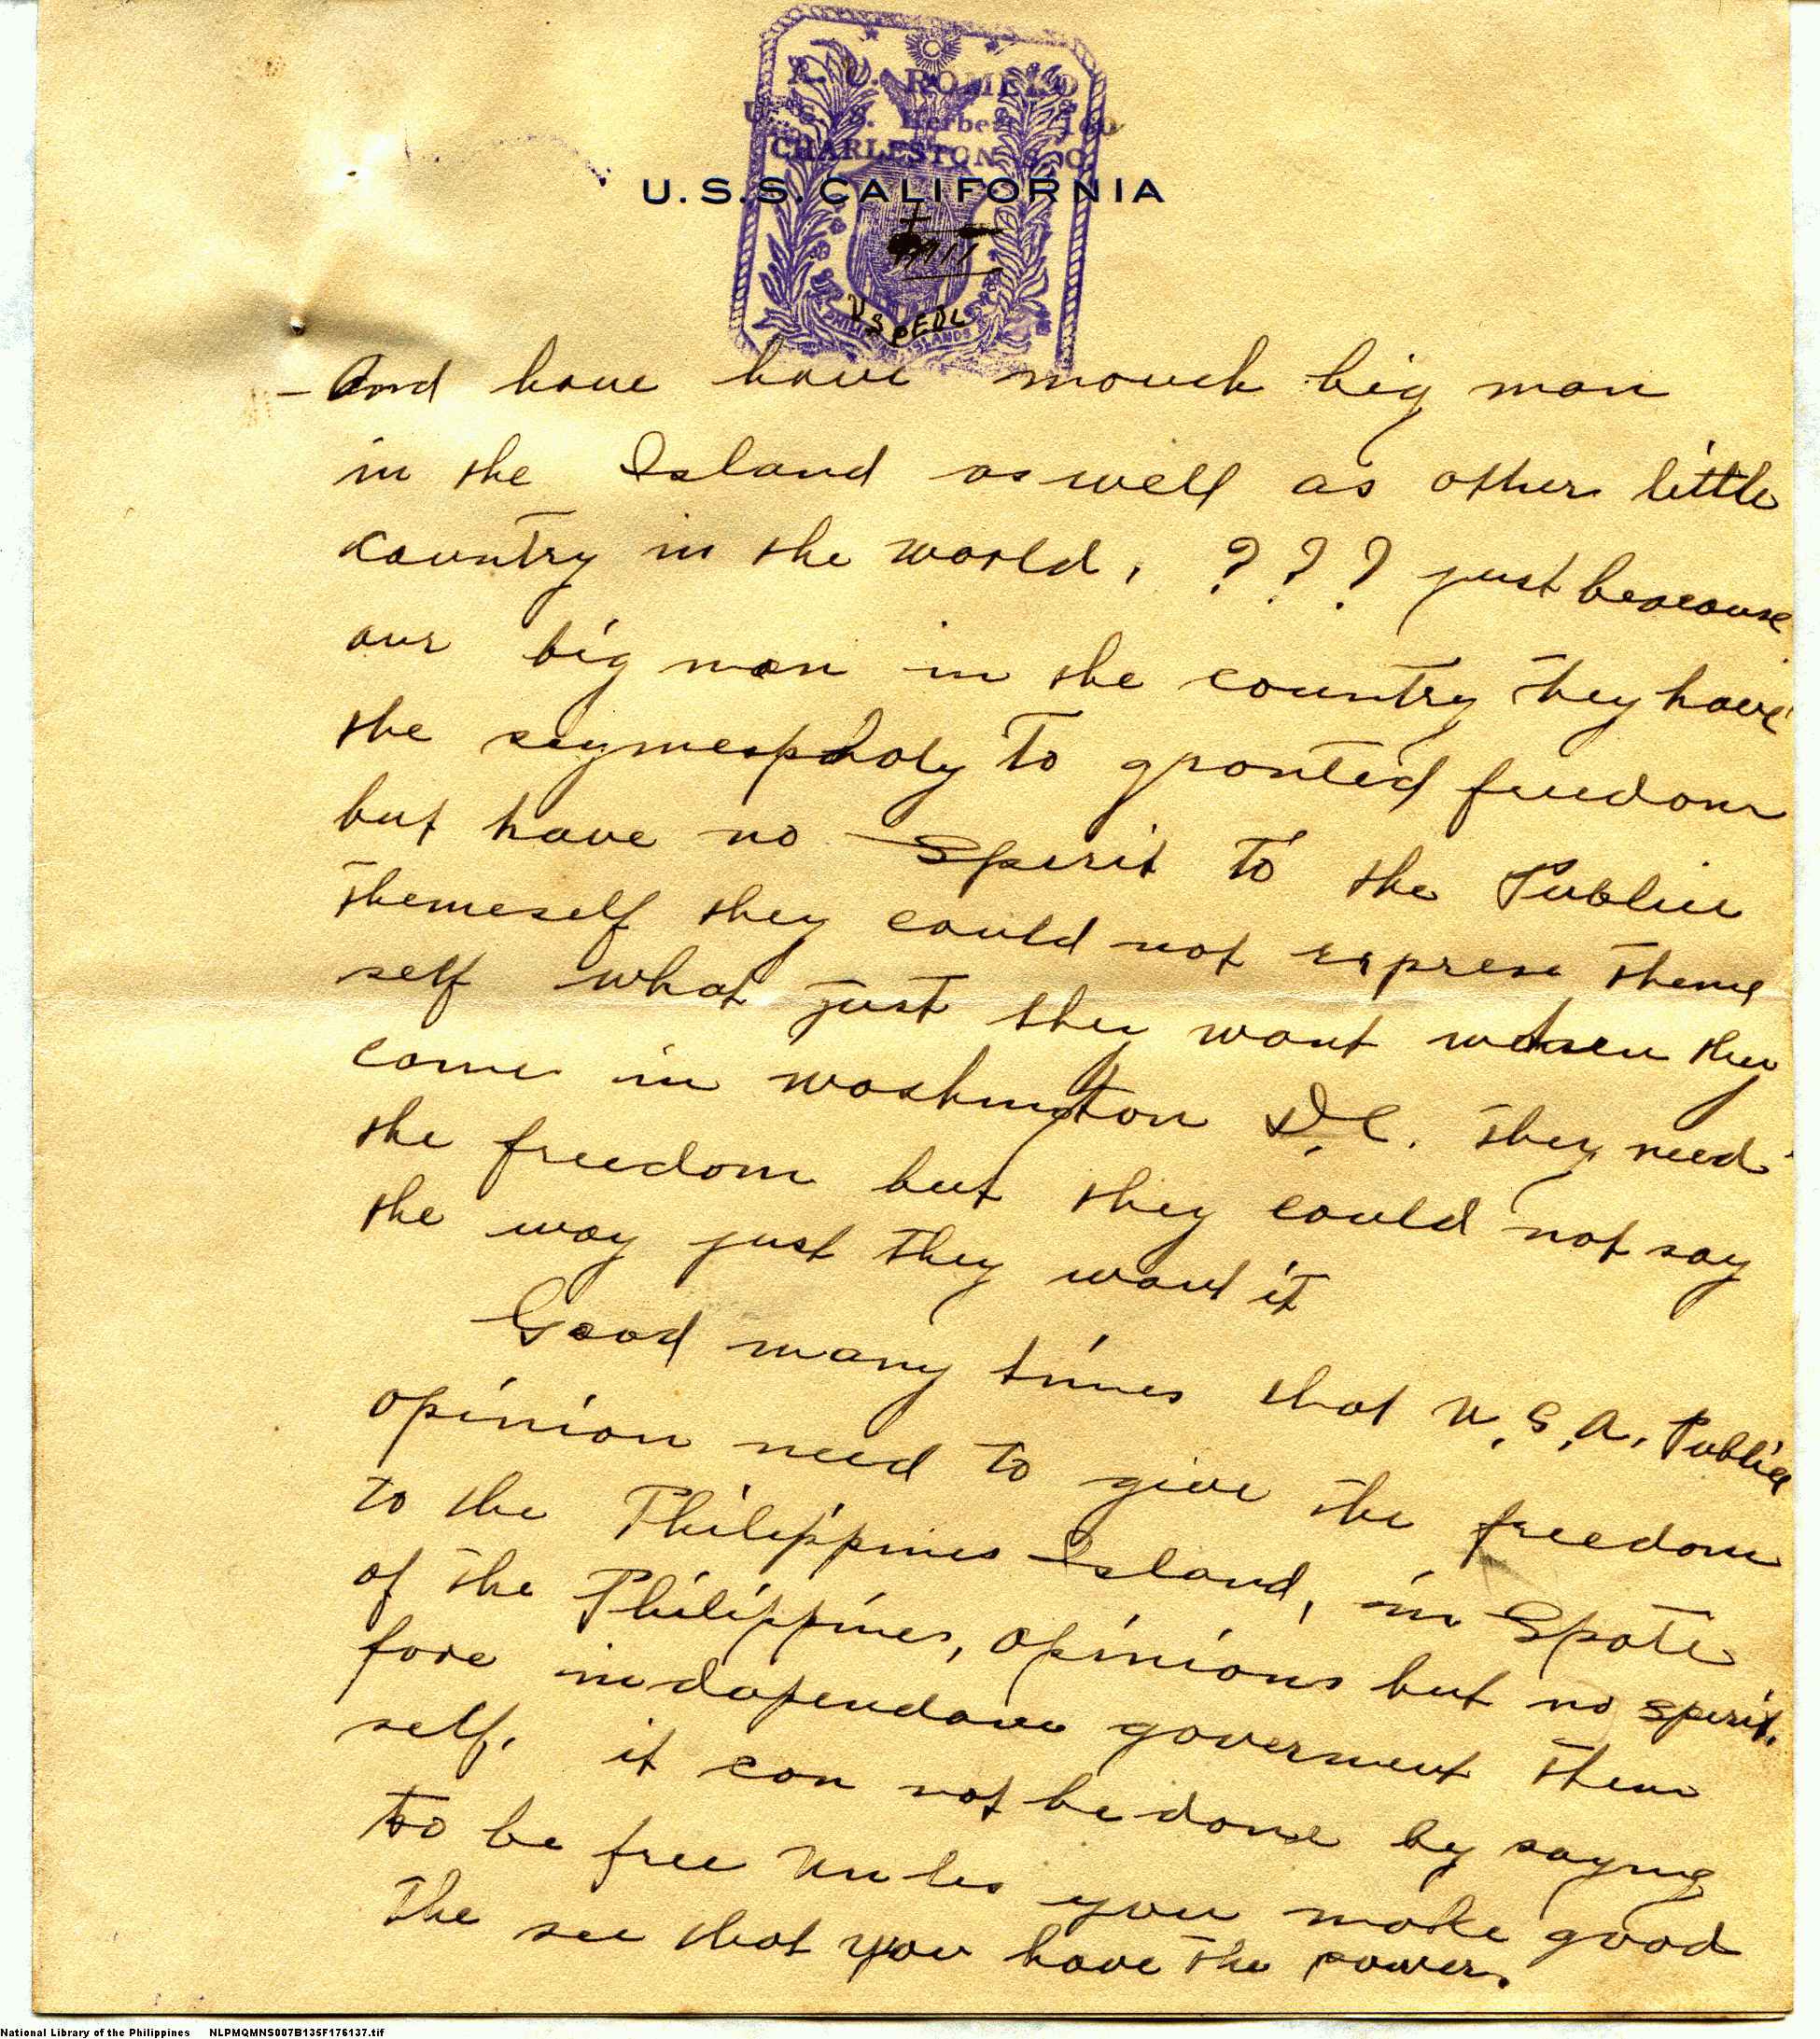 A. U. ROMELO
U. S. S. Herbert 160
CHARLESTON S. C.
U.S.S. CALIFORNIA
PHILIPPINE ISLANDS
- And have have mouch big man
in the Island as well as other little
country in the world, ? ? ? just beacause
our big man in the country they have
the to granted freedom
but have no Sperit to the Public
themeself they could not express theme
self what just they want when they
come in washington D.C. they need
the freedom but they could not say
the way just they want it
Good many times that U.S.A. Public
opinion need to give the freedom
to the Philippines Island, in Spate
of the Philippines, opinions but no sperit.
fore indapendance goverment them
self, it can not be done by saying
too be free unles you make good
the see that you have the power.
National Library of the Philippines NLPMQMNS007B135F176137.tif